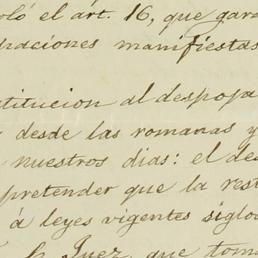 oló el árt. 16, que gara
araciones manifiestas
stitucion al despoja
desde las romanas y
nuestros dias: el de
pretender que la rest
á leyes vigentes siglo
Juez, que tom